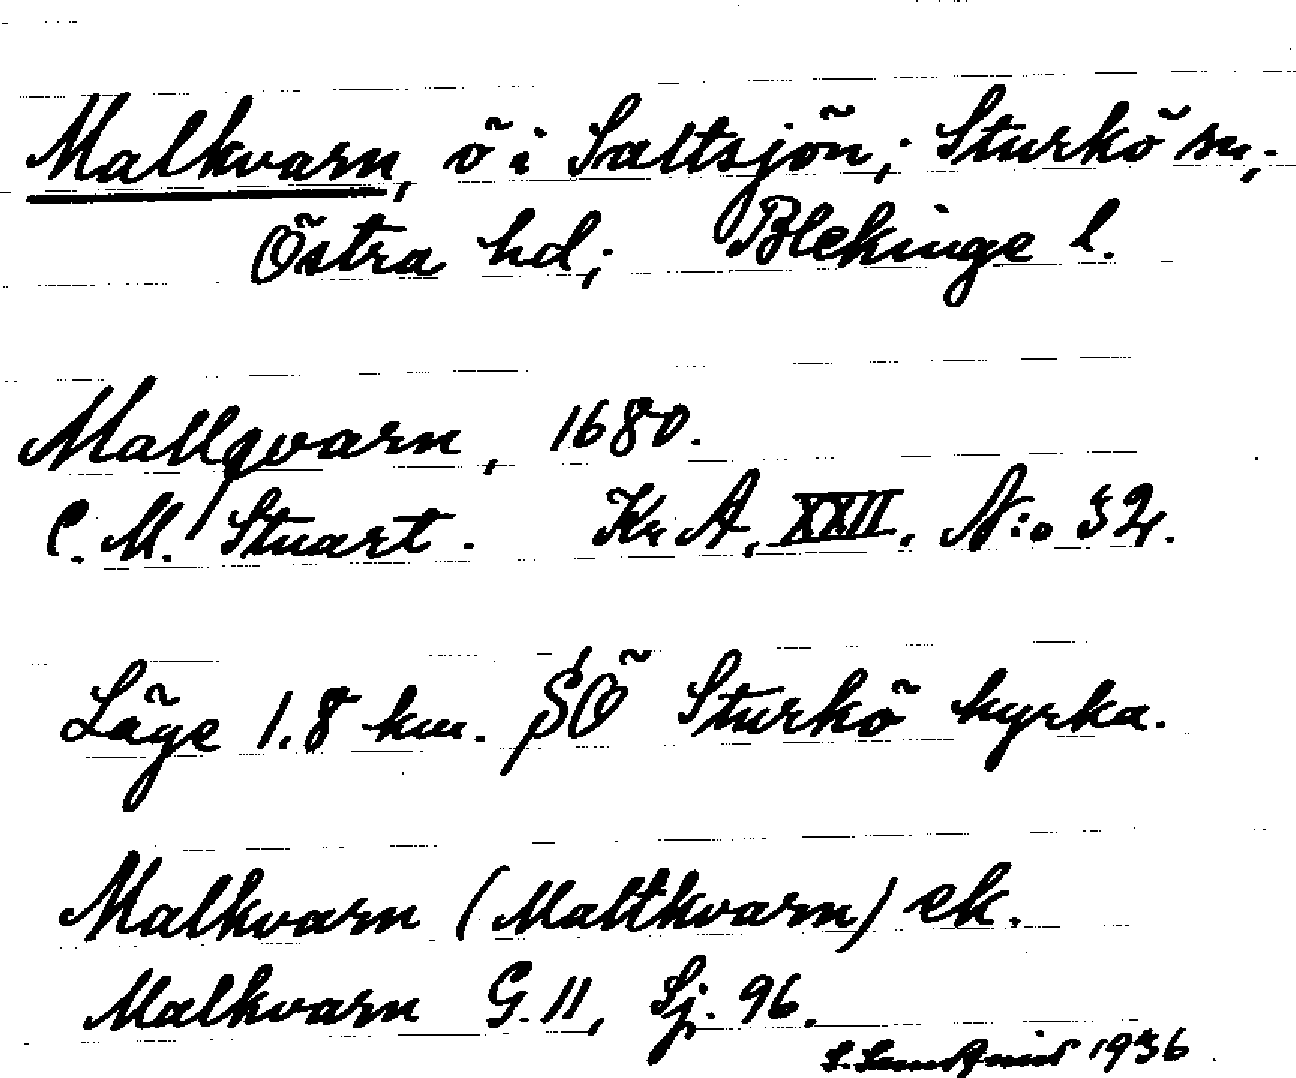 Malkvarn, ö i Saltsjön; Sturkö sn,
Östra hd; Blekinge l.
Mallqvarn, 1680.
C. M. Stuart. Kr A, XXII. N:o 32.
Läge 1.8 km. SÖ Sturkö kyrka.
Malkvarn (Maltkvarn) ek.
Malkvarn G. 11, Sj. 96.
1936